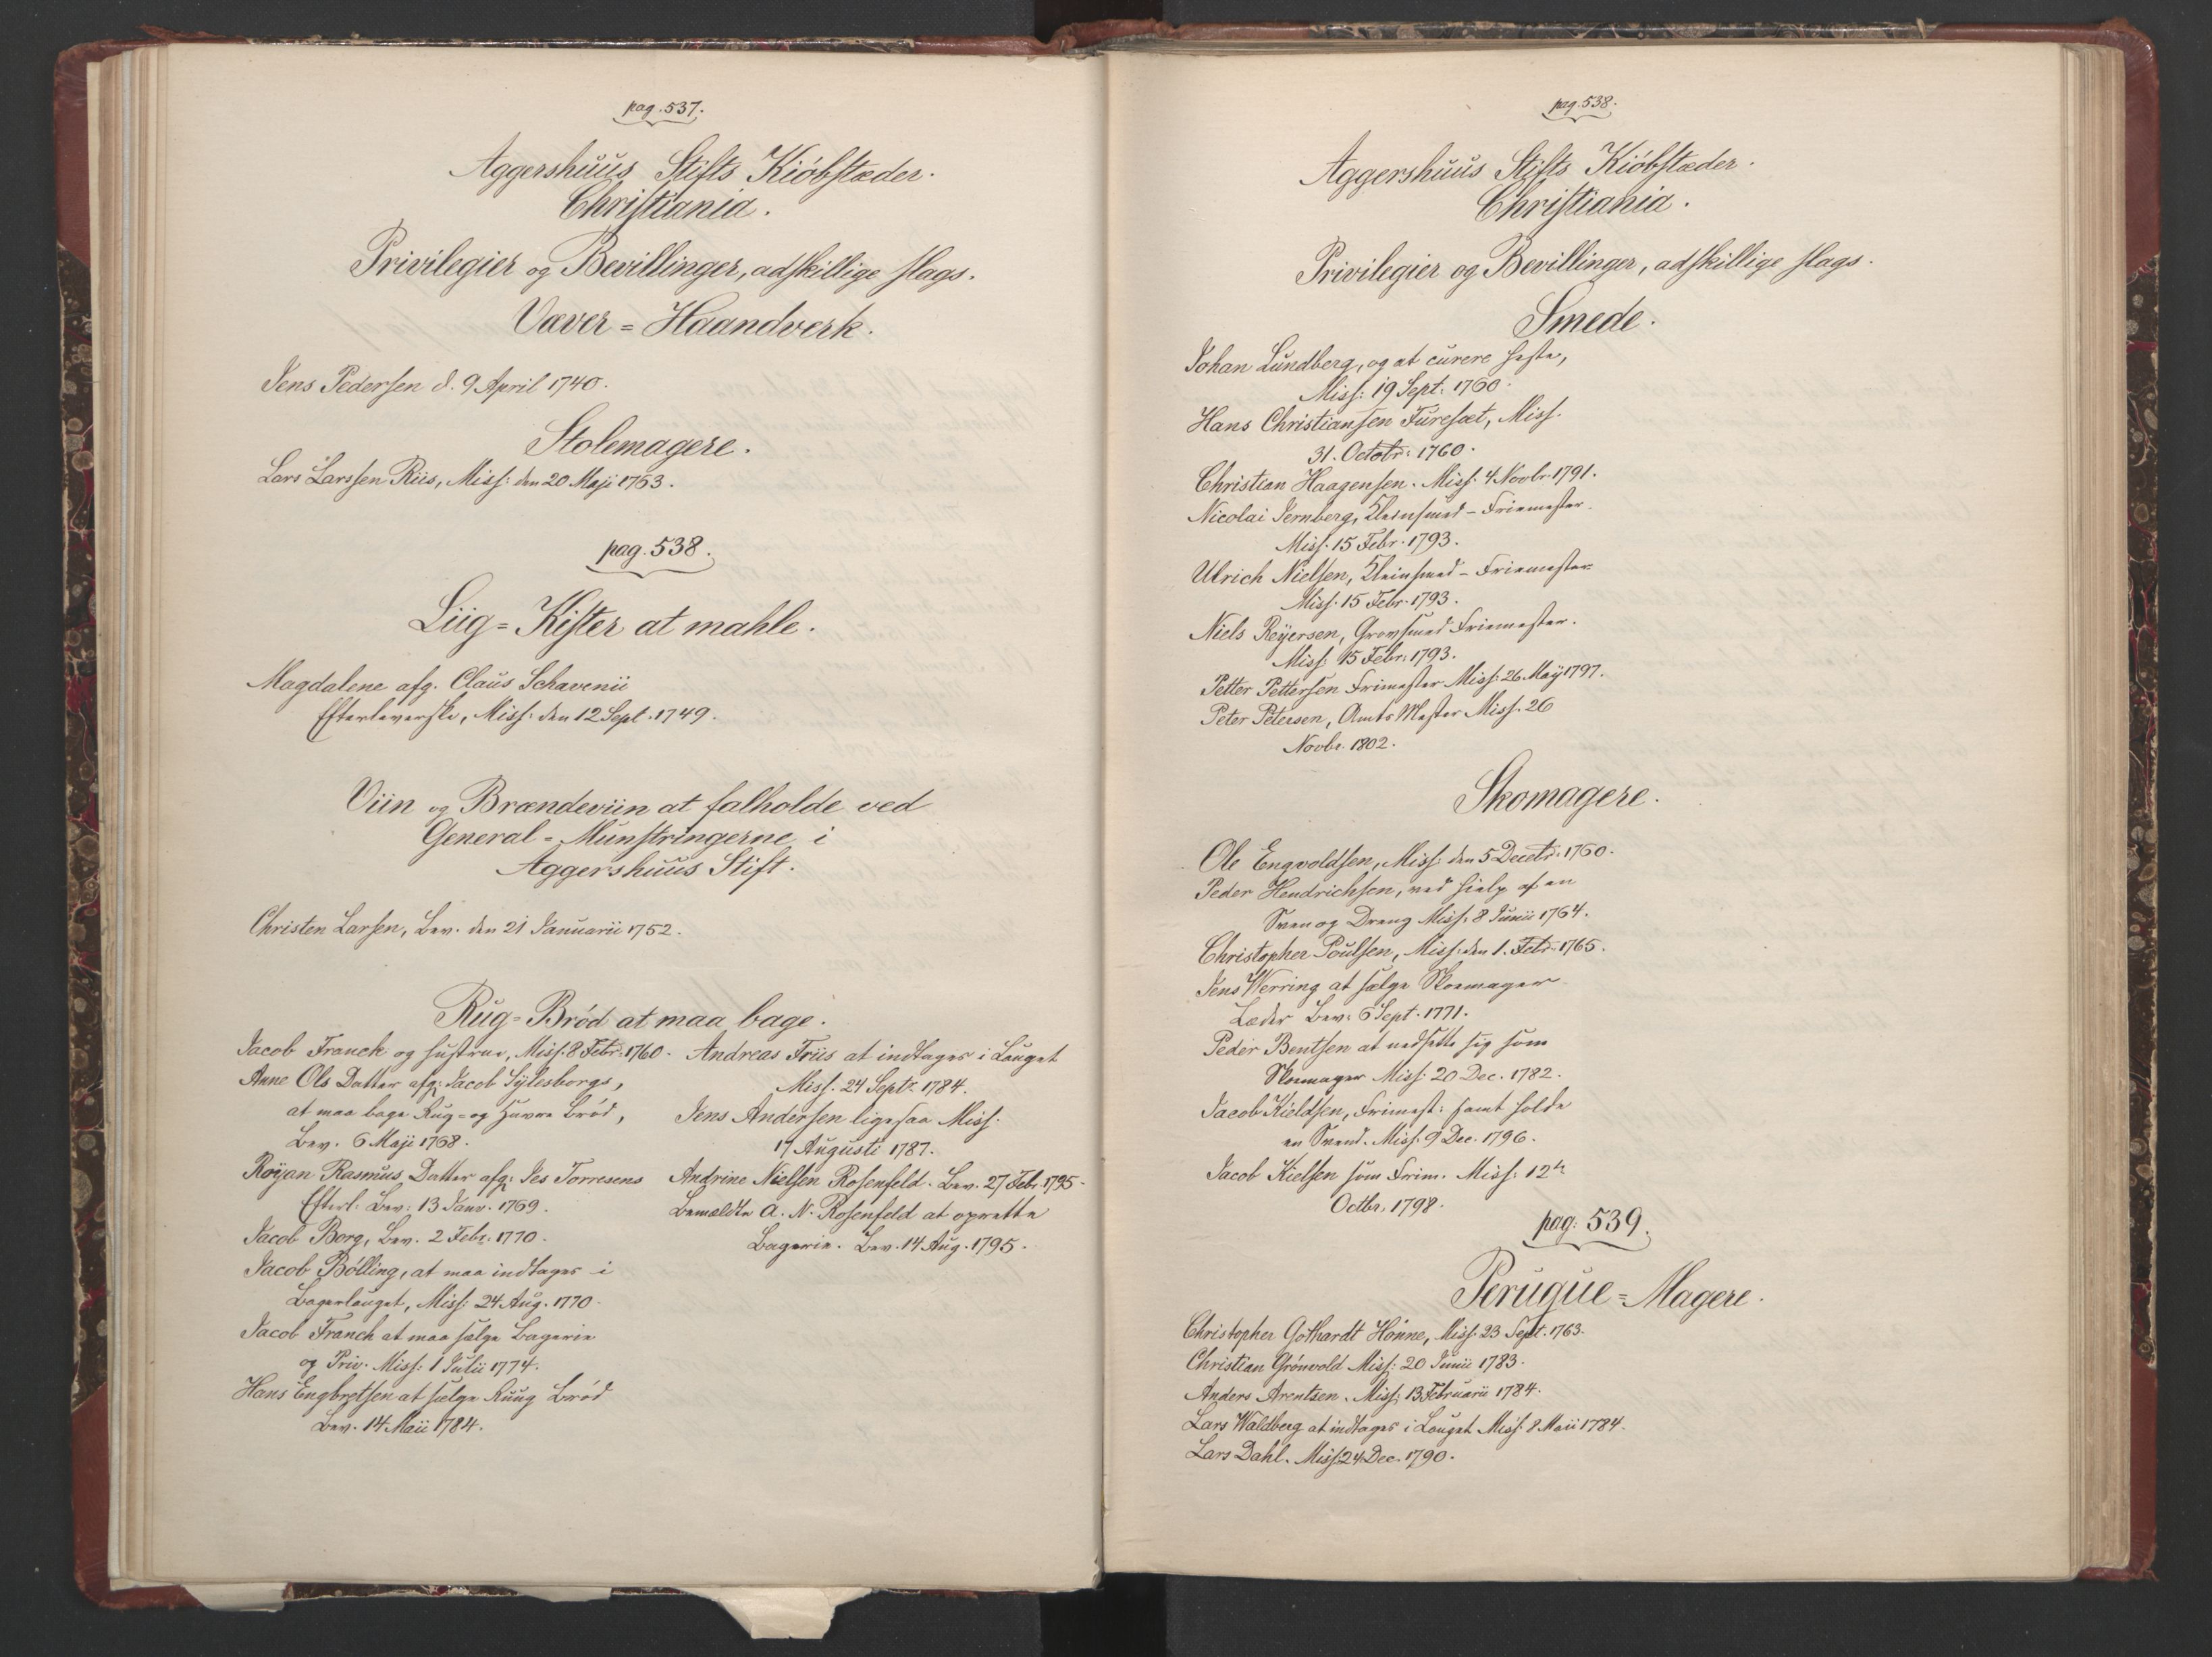 pag. 537.
Aggershuus Stifts Kiöbstæder.
Christiania.
Privilegier og Bevillinger, adskillige slags.
Væver = Haandverk.
Jens Pedersen d. 9 April 1740.
Stolemagere.
Lars Larssen Riis, Miss: den 20 Maji 1763.
pag. 538.
Liig = Kister at mahle.
Magdalene afg. Claus Schavenii
Efterleverske, Miss: den 12 Sept. 1749.
Viin og Brændeviin at falholde ved
General = Munstringerne i
Aggershuus Stift.
Christen Larsen, Bev. den 21 Januarii 1752.
Rug = Bröd at maa bage.
Jacob Franck og hustrue, Miss. 8 Febr: 1760.
Anne Ols Datter afg: Jacob Sylesborgs,
at maa bage Rug = og Havre Bröd,
Bev. 6 Maji 1768.
Röyan Rasmus Datter afg: Jes Torresens
Efterl. Bev: 13 Janv. 1769.
Jacob Borg, Bev. 2 Febr. 1770.
Jacob Bölling, at maa indtages i
Bagerlauget, Miss: 24 Aug. 1770.
Jacob Franch at maa sælge Bagerie
og Priv. Miss: 1 Julii 1774.
Hans Engbretsen at sælge Ruug Bröd
Bev. 14 Maii 1784.
Andreas Friis at indtages i Lauget
Miss. 24 Septr. 1784.
Jens Andersen ligesaa Miss.
17 Augusti 1787.
Andrine Nielsen Rosenfeld. Bev. 27 Febr. 1795.
Bemældte A. N. Rosenfeld at oprette
Bagerie. Bev. 14 Aug. 1795.
pag. 538.
Aggershuus Stifts Kiöbstæder.
Christiania.
Privilegier og Bevillinger, adskillige slags.
Smede.
Johan Lundberg, og at curere Heste,
Miss: 19 Sept: 1760.
Hans Christiansen Furesæt, Miss.
31. Octobr: 1760.
Christian Haagensen. Miss. 4 Novbr. 1791.
Nicolai Jernberg, Kleinsmed - Friemester.
Miss. 15 Febr. 1793.
Ulrich Nielsen, Kleinsmed - Friemester
Miss. 15 Febr. 1793.
Niels Reyersen, Grovsmed Friemester.
Miss: 15 Febr. 1793.
Petter Pettersen Frimester Miss: 26 May 1797.
Peter Petersen, Amts Mester Miss. 26
Novbr. 1802.
Skomagere.
Ole Engvoldsen, Miss: den 5 Decebr: 1760.
Peder Hendrichsen, ved hielp af en
Sven og Dreng Miss: 8 Junii 1764.
Christopher Poulsen, Miss: den 1. Febr: 1765.
Jens Werring at sælge Skoemager
Læder Bev: 6 Sept. 1771.
Peder Bentsen at nedsette sig som
Skoemager Miss: 20 Dec. 1782.
Jacob Kieldsen, Frimest: samt holde
en Svend. Miss. 9 Dec. 1796.
Jacob Kielsen som Frim. Miss: 12te
Octbr. 1798.
pag: 539.
Peruque = Magere.
Christopher Gothardt Hönne, Miss. 23 Sept. 1763.
Christian Grönvold Miss: 20 Junii 1783.
Anders Arentsen. Miss; 13 Februarii 1784.
Lars Waldberg at indtages i Lauget Miss. 8 Maii 1784.
Lars Dahl. Miss. 24 Dec. 1790.